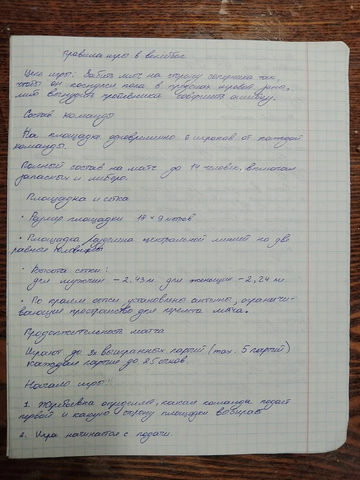 Правила игры в волейбол
Цель игры: Забить мяч на сторону соперника так,
чтобы он коснулся пола в пределах игровой зоны,
или вынудить противника совершить ошибку.
Состав команды
На площадке одновременно 6 игроков от каждой
команды.
Полный состав на матч до 14 человек, включая
запасных и либеро.
Площадка и сетка
• Размер площадки 18 × 9 метров
• Площадка разделена центральной линией на две
равные половины
• Высота сетки:
для мужчин – 2,43 м. для женщин – 2,24 м.
• По краям сетки установлены антенны, ограничи-
вающие пространство для пролёта мяча.
Продолжительность матча
Играют до 3х выигранных партий (мак. 5 партий)
каждая партия до 25 очков.
Начало игры:
1. Жеребьёвка определяет, какая команда подаёт
первой и какую сторону площадки выбирает
2. Игра начинается с подачи.